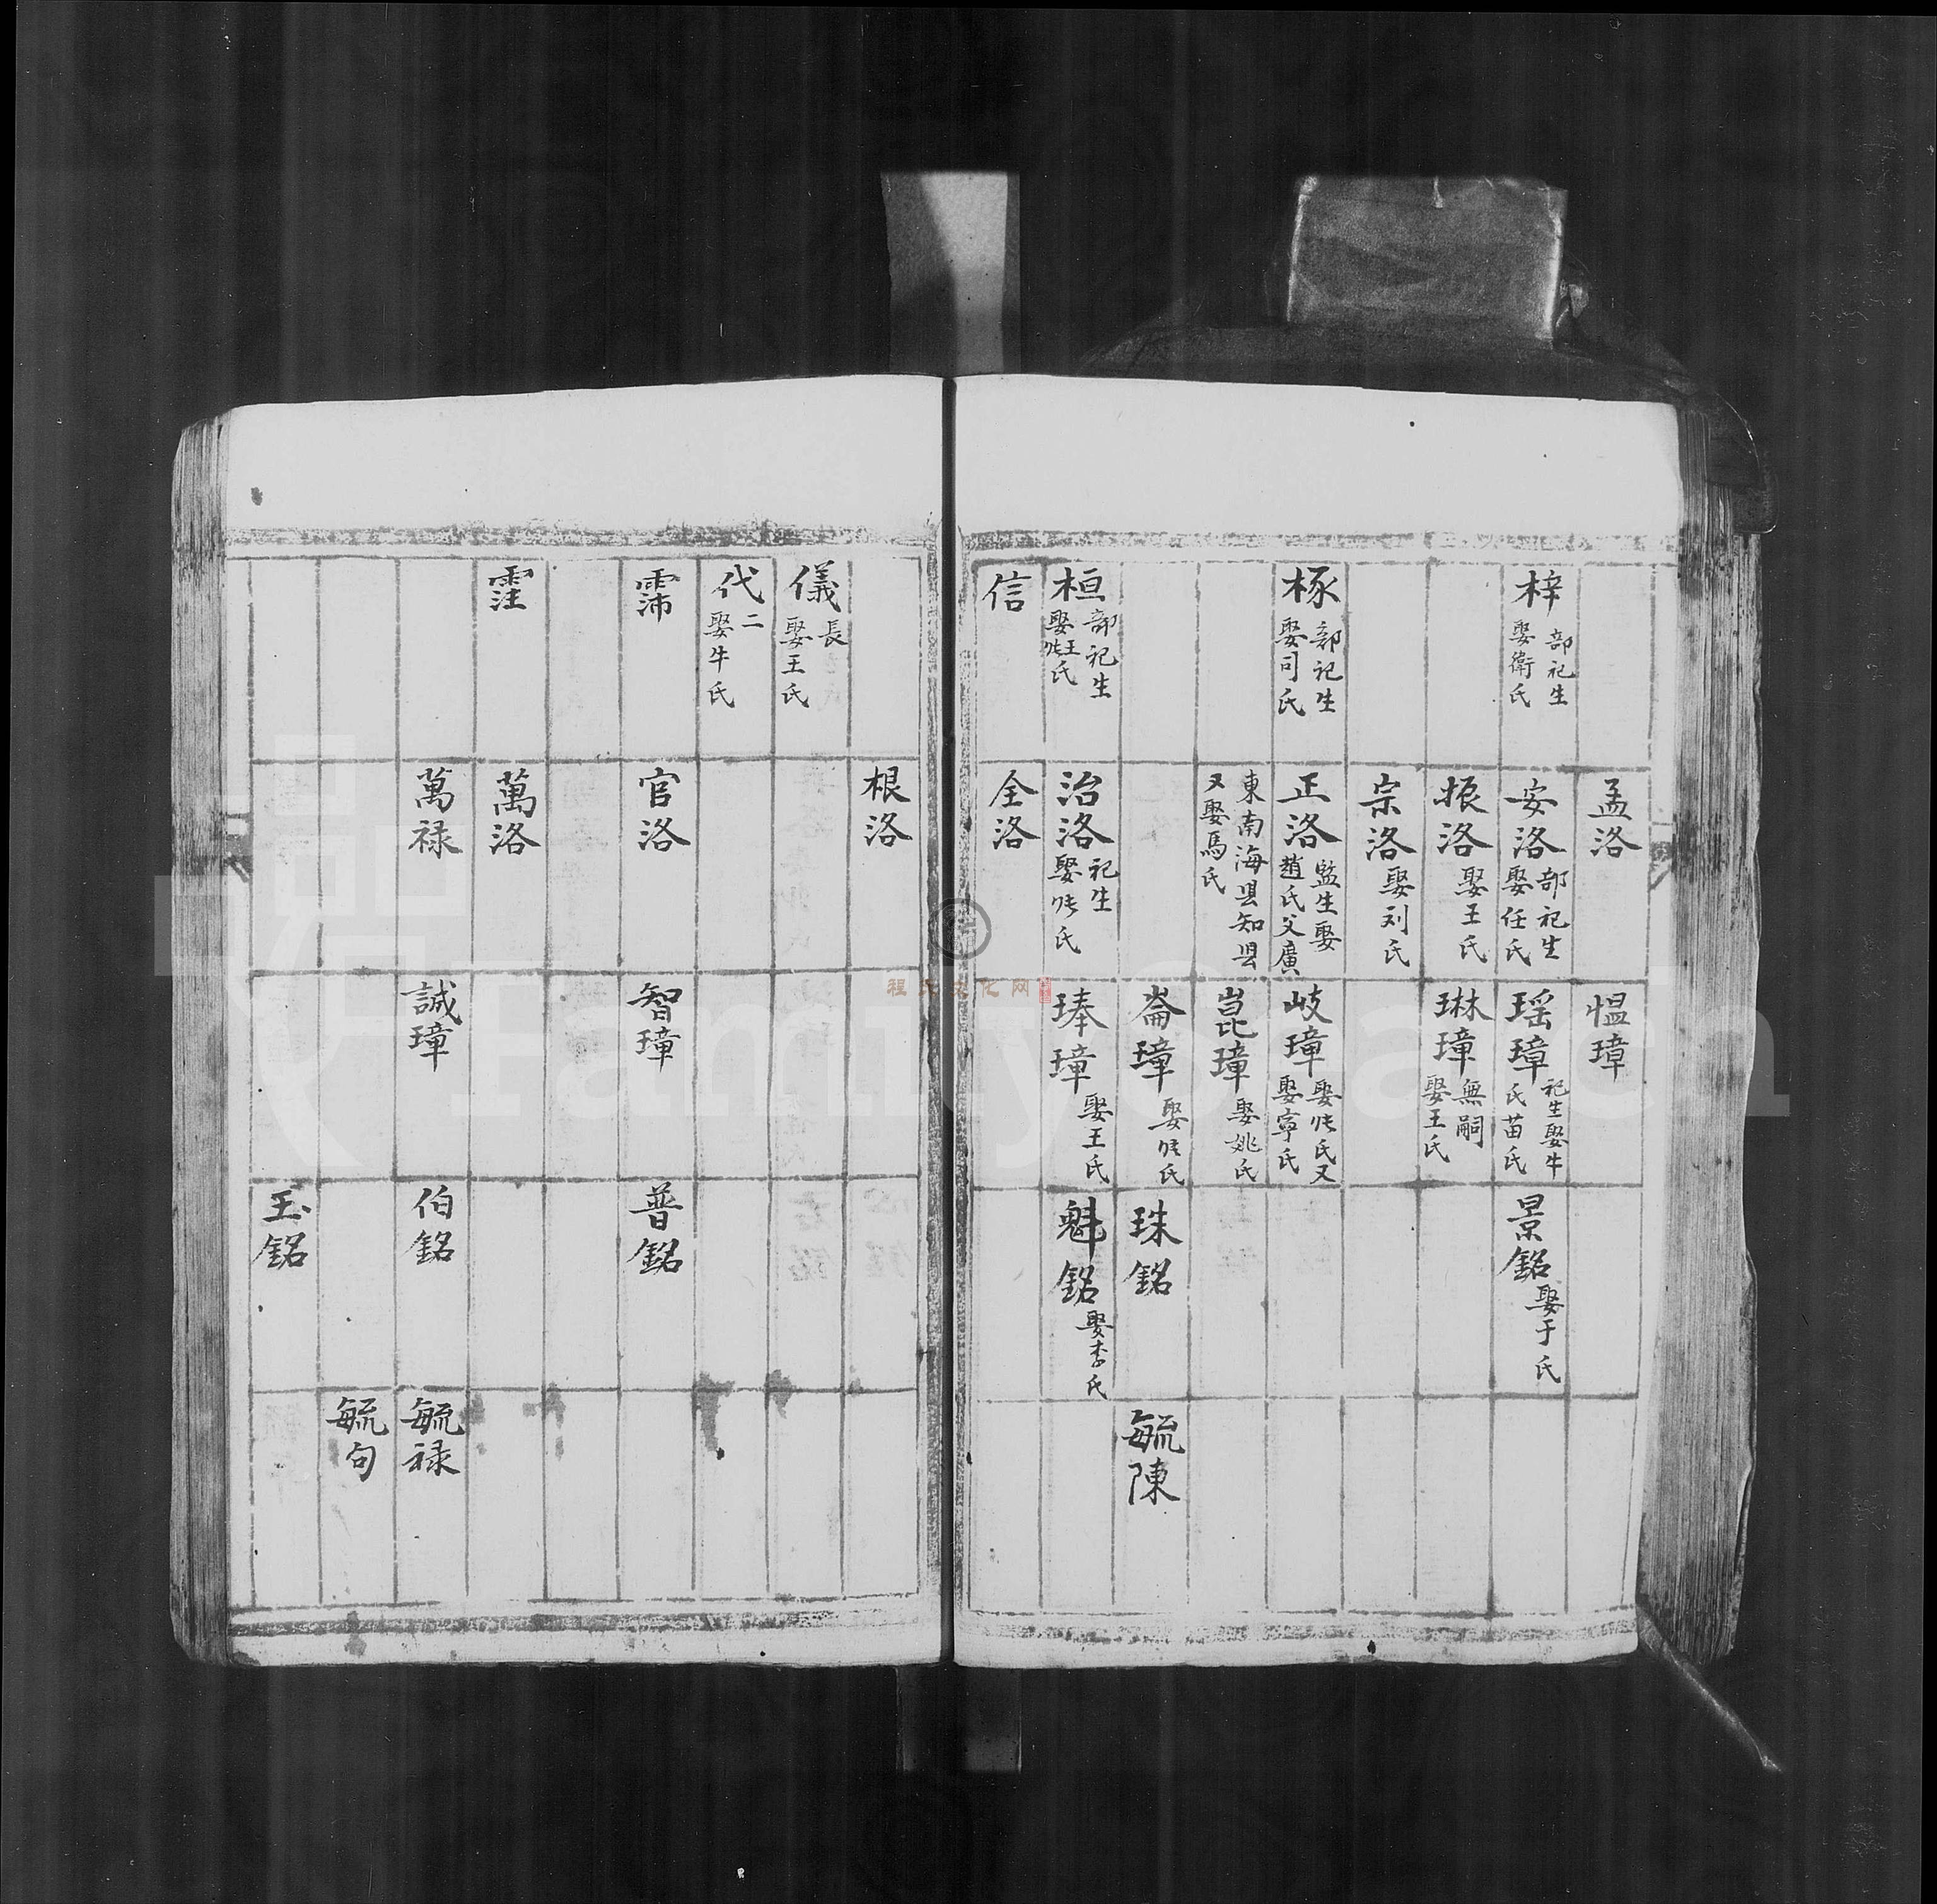 孟洛
愠璋
梓 部祀生
娶衛氏
安洛 部祀生
娶任氏
瑶璋 祀生娶牛
氏苗氏
景銘 娶于氏
振洛 娶王氏
琳璋 無嗣
娶王氏
宗洛 娶刘氏
椓 部祀生
娶司氏
正洛 監生娶
趙氏父廣
岐璋 娶张氏又
娶寧氏
東南海县知县
又娶馬氏
崑璋 娶姚氏
崙璋 娶张氏
珠銘
毓陳
桓 部祀生
娶王张氏
治洛 祀生
娶张氏
琫璋 娶王氏
魁銘 娶李氏
信
全洛
根洛
儀 長
娶王氏
代 二
娶牛氏
霈
官洛
智璋
普銘
霔
萬洛
萬禄
誠璋
伯銘
毓禄
毓句
玉銘
程氏文化网
FamilySearch